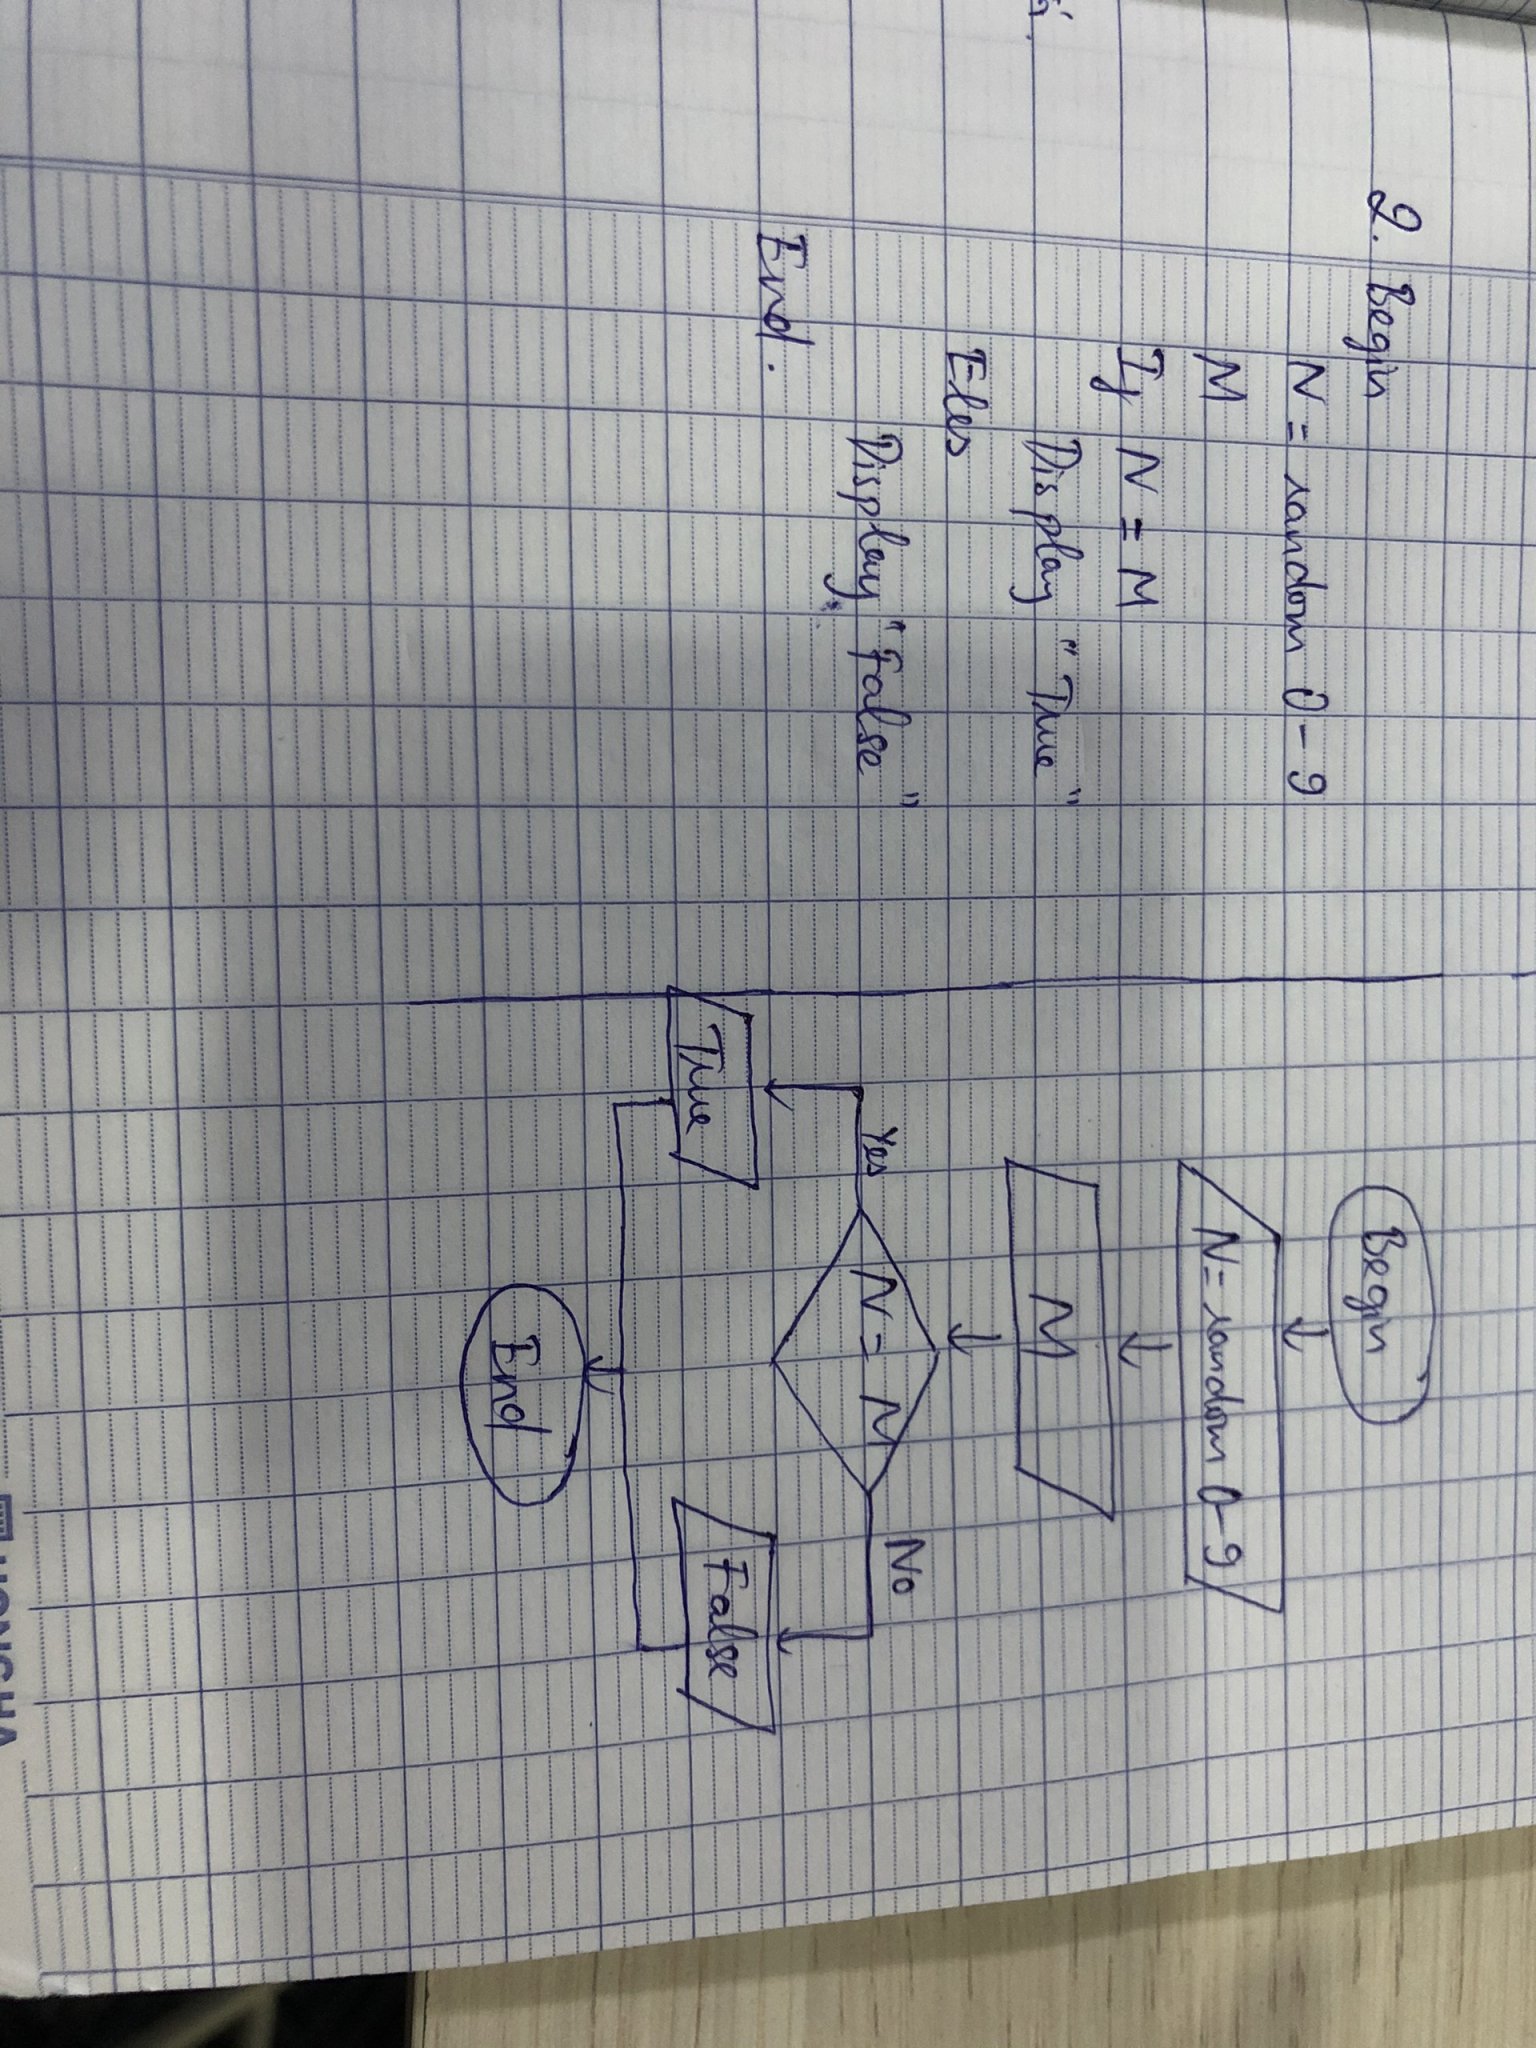 2. Begin
N = random 0-9
M
If N = M
Display "True"
Eles
Display "False"
End.
Begin
N = random 0-9
M
N = M
Yes
No
True
False
End